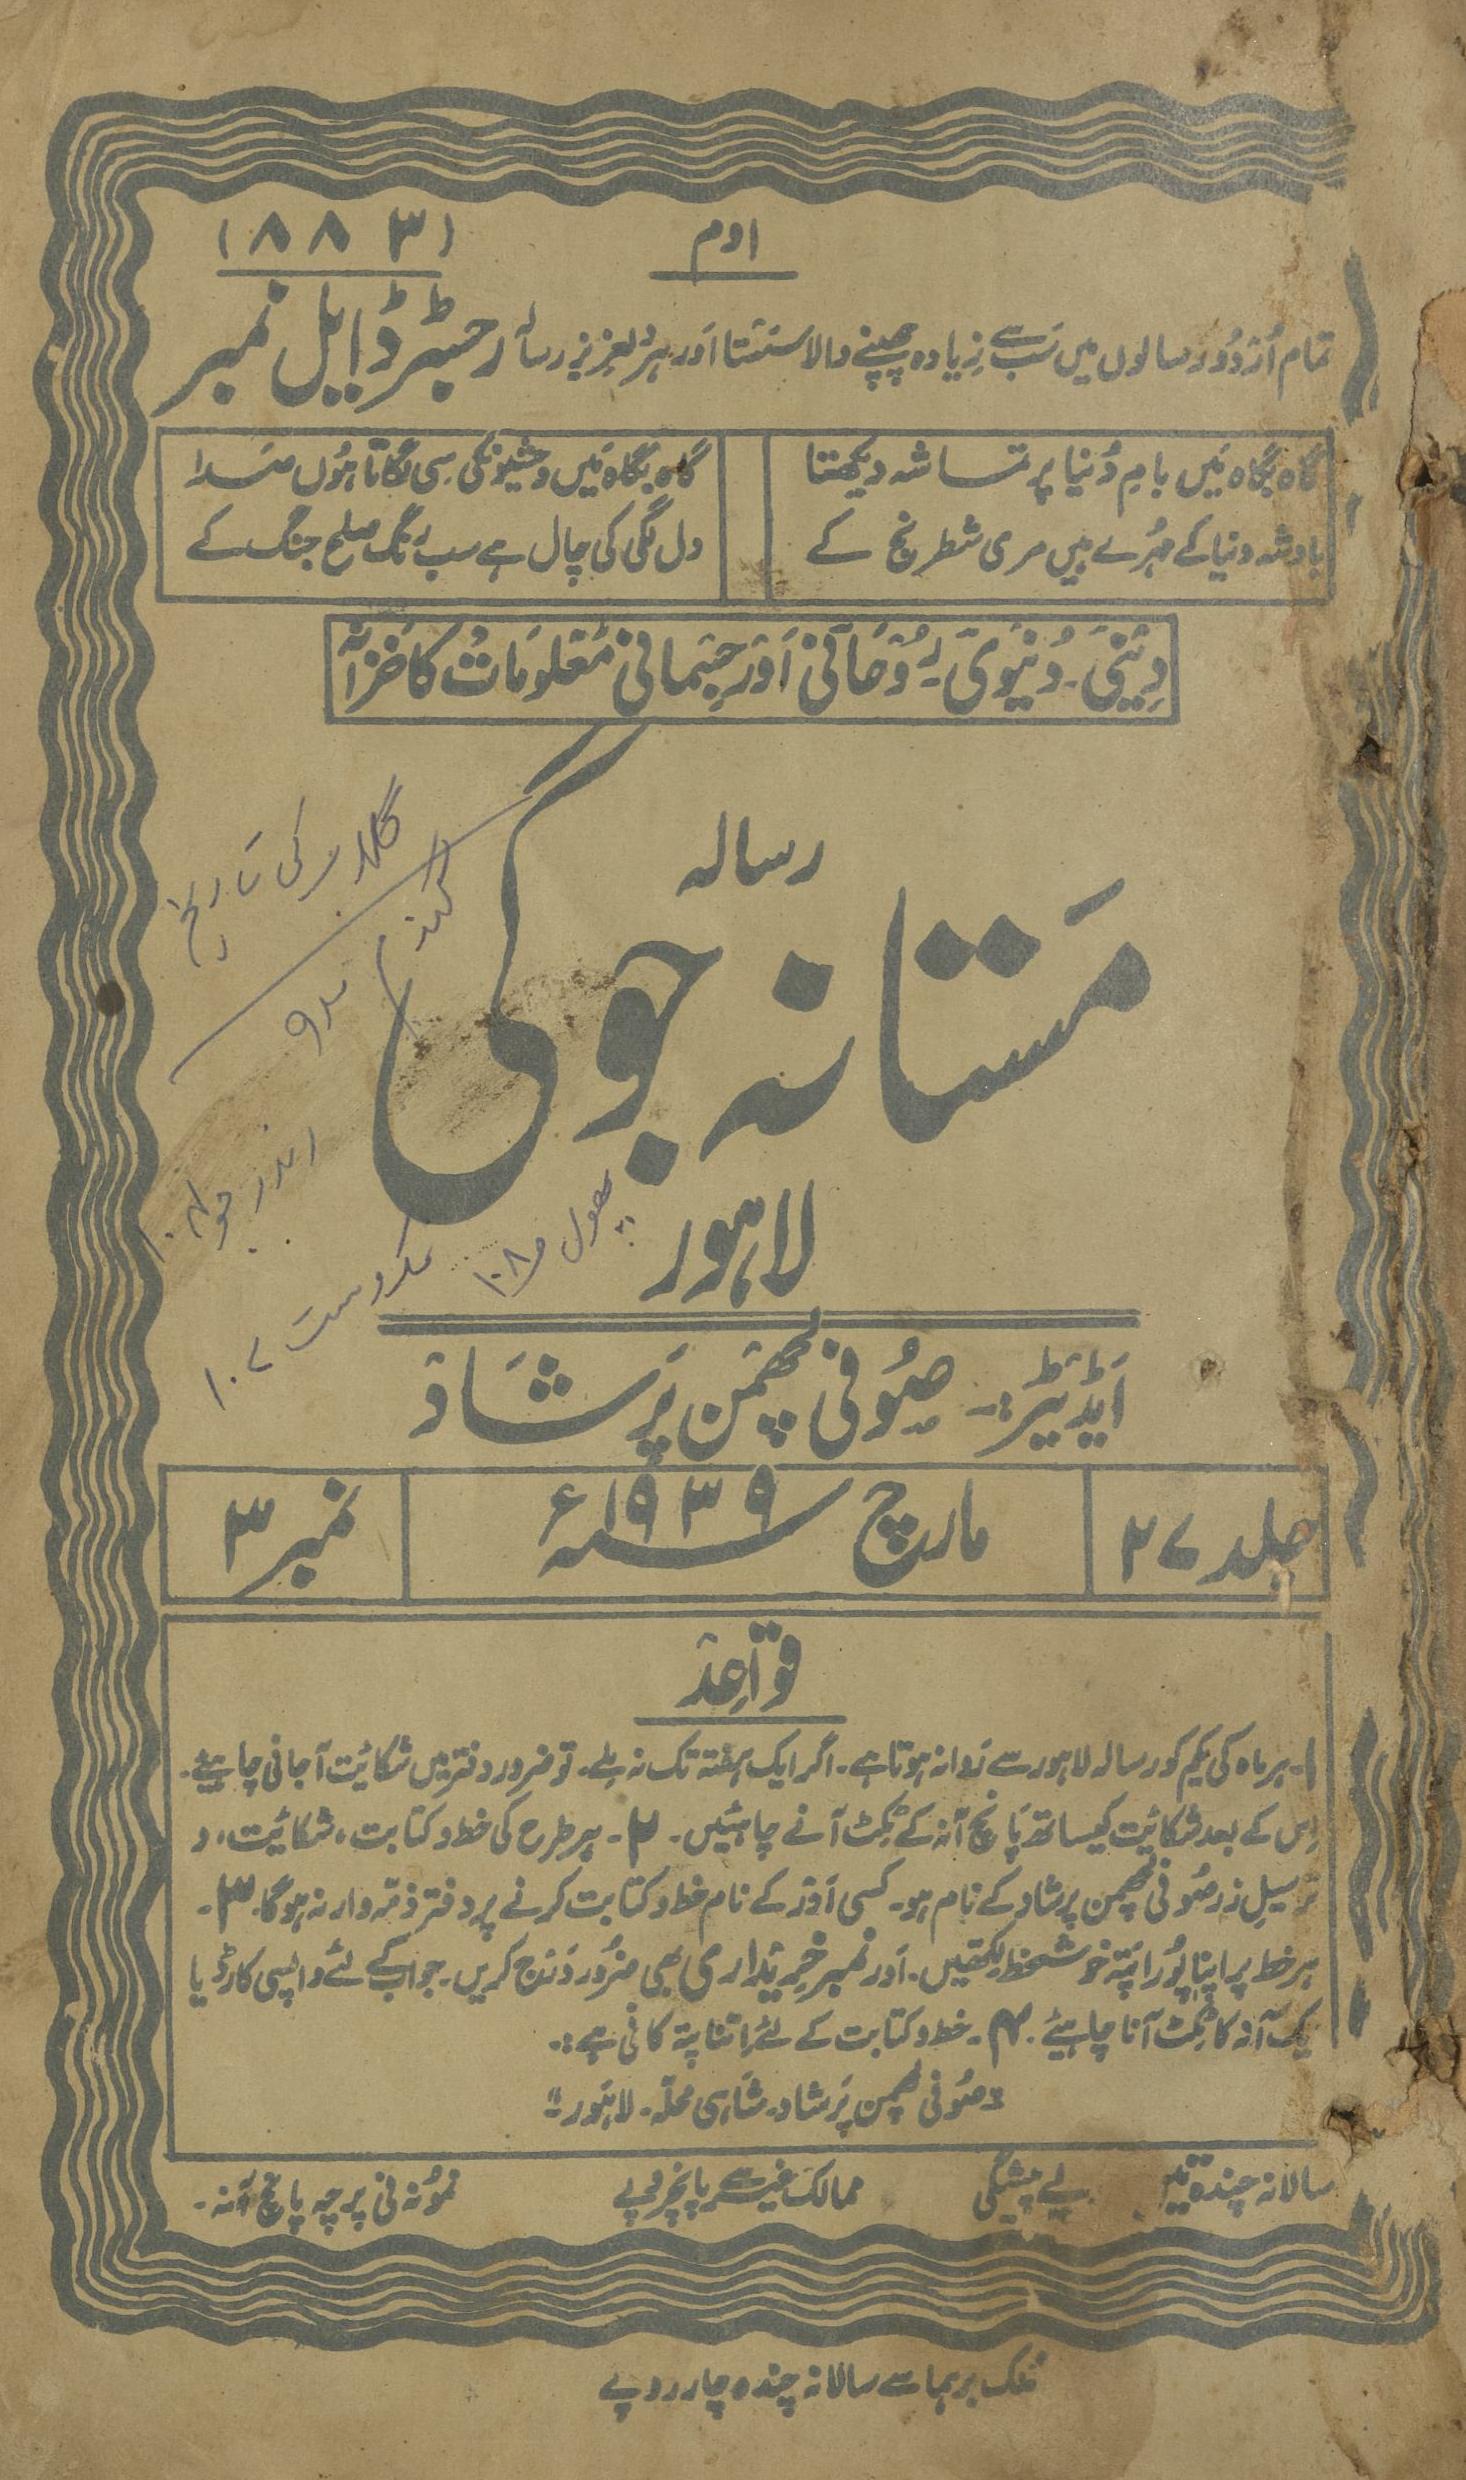 اوم
(۸۸۳)
تمام اُردُو رسالوں میں سَب سے زیادہ چھپنے والا سَستا اَور ہردلعزیز رسالہ رجسٹرڈ ایل نمبر
گاہ بگاہ مَیں بامِ دُنیا پر تماشہ دیکھتا
گاہ بگاہ مَیں وحشیونکی سی لگاتا ہُوں صَدا
بادشہ دنیا کے مہُرے ہیں مری شطرنج کے
دل لگی کی چال ہے سب رنگ صلح جنگ کے
دِینی ۔ دُنیوَی ۔ رُوحانی اَور جِسمانی مَعلومَات کا خزانہ
رسالہ
مَستانہ جوگی
لاہور
اَیڈیٹَر:۔ صُوفی لچھمن پَرشاد
جلد ۲۷
مارچ ۱۹۳۹ء
نمبر ۳
قواعِد
۱۔ ہر ماہ کی یکم کو رسالہ لاہور سے رَوانہ ہوتا ہے۔ اگر ایک ہفتہ تک نہ ملے۔ تو ضرور دفتر میں شکائیت آجانی چاہیئے۔
اِس کے بعد شکائیت کیساتھ پانچ آنہ کے ٹکٹ آنے چاہئیں۔ ۲۔ ہر طرح کی خط و کتابت، شکائیت، و
ترسیلِ زر صُوفی لچھمن پرشاد کے نام ہو۔ کسی اَور کے نام خط و کتابت کرنے پر دفتر ذمّہ وار نہ ہوگا۔ ۳۔
ہر خط پر اپنا پُورا پتہ خوشخط لِکھیں۔ اَور نمبر خریداری بھی ضرُور دَرج کریں۔ جواب کے لئے واپسی کارڈ یا
یک آنہ کا ٹِکٹ آنا چاہیئے۔ ۴۔ خط و کتابت کے لئے اِتنا پتہ کافی ہے:۔
"صُوفی لچھمن پَرشاد۔ شاہی محلّہ۔ لاہَور"
سالانہ چندہ پیشگی ممالک غیر سے پانچروپے نموُنہ فی پرچہ پانچ آنہ۔
ملک برہما سے سالانہ چندہ چار روپے
گلاب کی تاریخ
گندم
پھول ۱۰۸